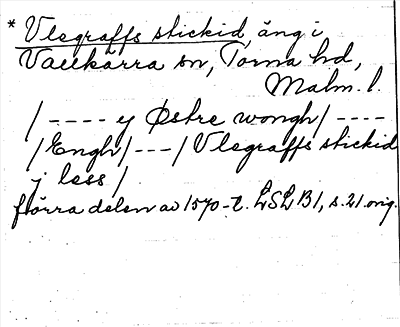 * Vlegraffs stickid, äng i
Vallkärra sn, Torna hd,
Malm. l.
/ - - - - y Østre wongh / - - - -
/ Engh / - - - / Vlegraffs stickid
j less /
förra delen av 1570-t. LSLB1, s. 21. orig.